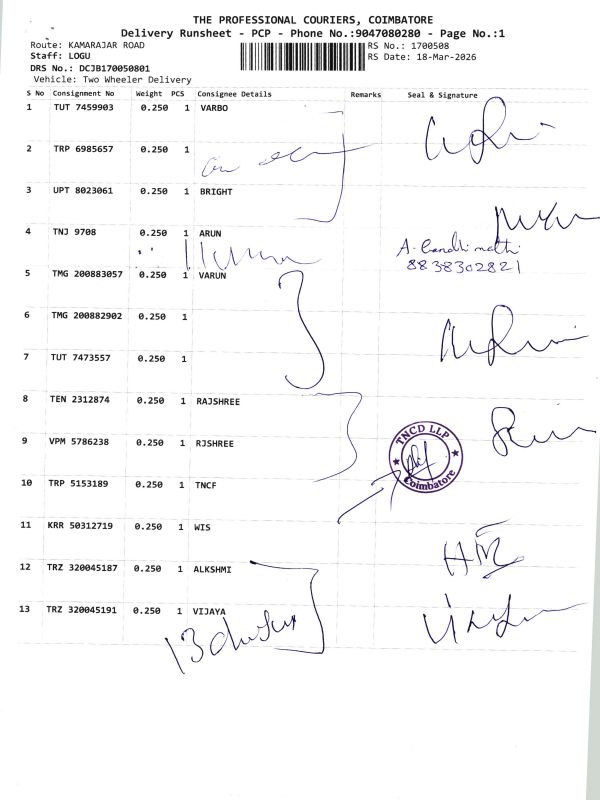 THE PROFESSIONAL COURIERS, COIMBATORE
Delivery Runsheet - PCP - Phone No.:9047080280 - Page No.:1
Route: KAMARAJAR ROAD
RS No.: 1700508
Staff: LOGU
RS Date: 18-Mar-2026
DRS No.: DCJB170050801
Vehicle: Two Wheeler Delivery
S No Consignment No Weight PCS Consignee Details Remarks Seal & Signature
1 TUT 7459903 0.250 1 VARBO
2 TRP 6985657 0.250 1
3 UPT 8023061 0.250 1 BRIGHT
4 TNJ 9708 0.250 1 ARUN
A. Gandhimathi
8838302821
5 TMG 200883057 0.250 1 VARUN
6 TMG 200882902 0.250 1
7 TUT 7473557 0.250 1
8 TEN 2312874 0.250 1 RAJSHREE
9 VPM 5786238 0.250 1 RJSHREE
TNCD LLP
Coimbatore
10 TRP 5153189 0.250 1 TNCF
11 KRR 50312719 0.250 1 WIS
12 TRZ 320045187 0.250 1 ALKSHMI
13 TRZ 320045191 0.250 1 VIJAYA